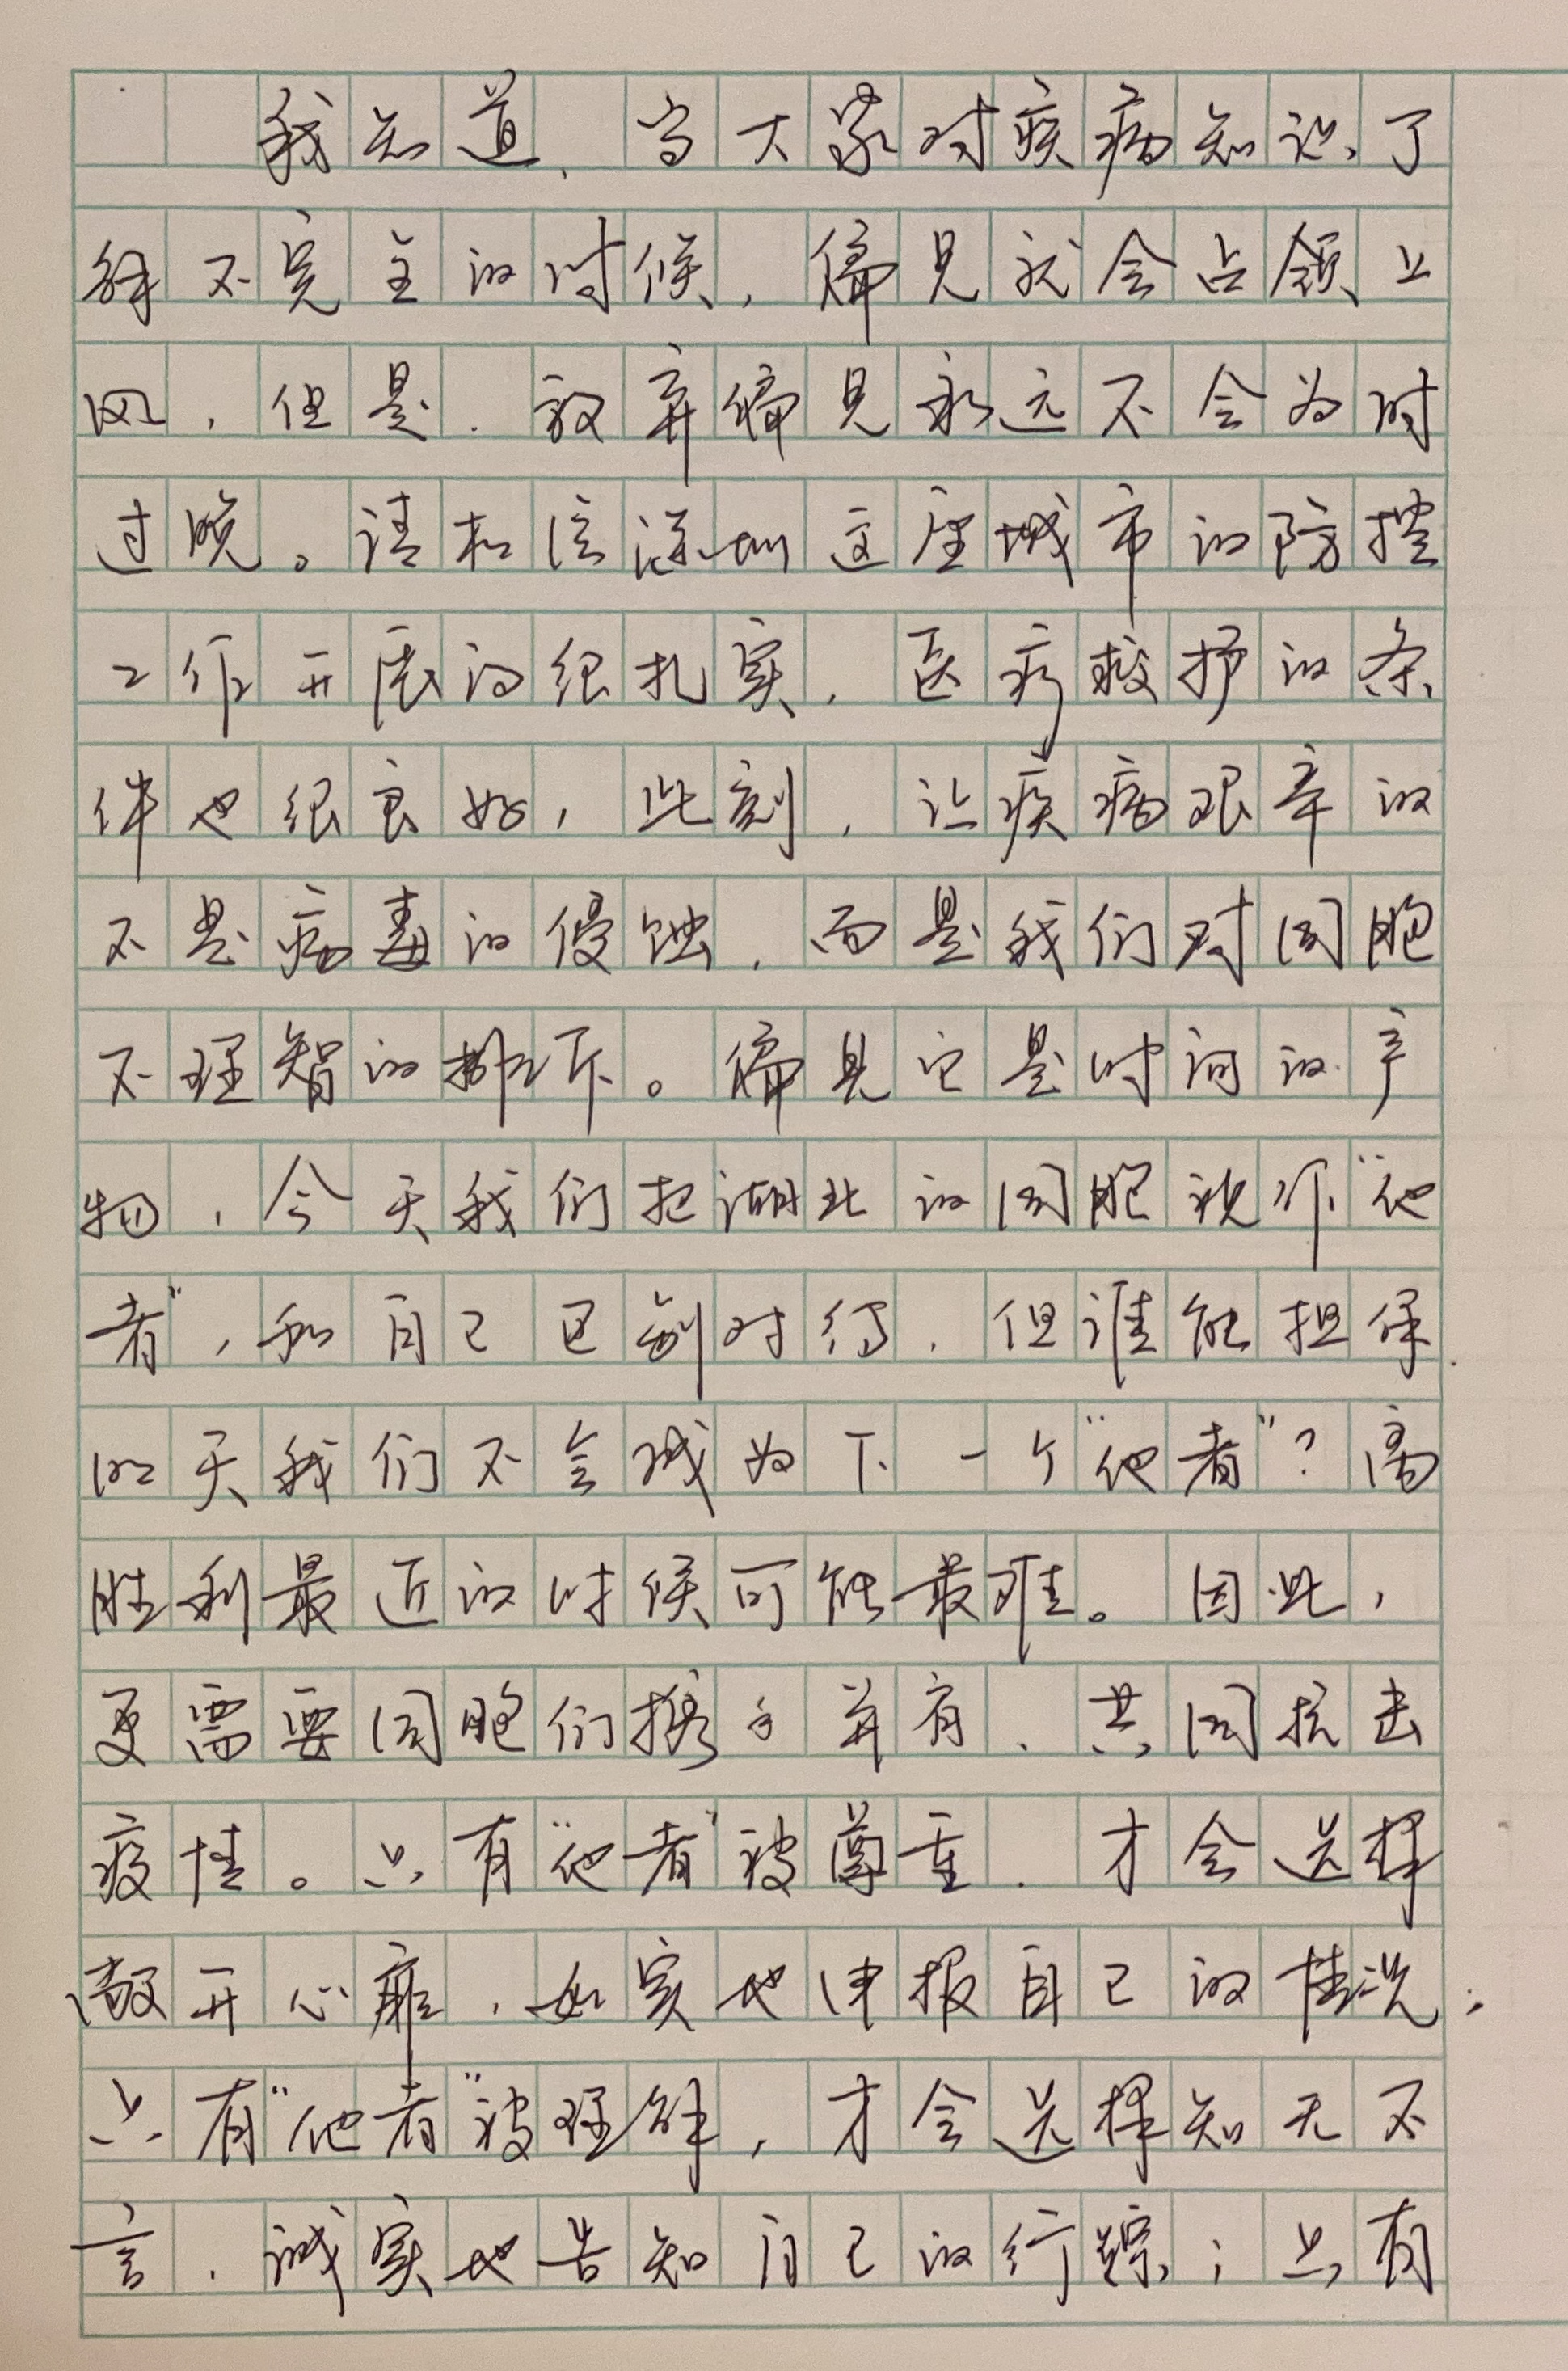 我知道，当大家对疾病知识了
解不完全的时候，偏见就会占领上
风，但是，放弃偏见永远不会为时
过晚。请相信深圳这座城市的防控
工作开展的很扎实，医疗救护的条
件也很良好，此刻，让疾病艰辛的
不是病毒的侵蚀，而是我们对同胞
不理智的排斥。偏见它是时间的产
物，今天我们把湖北的同胞视作“他
者”，和自己区别对待，但谁能担保
明天我们不会成为下一个“他者”？离
胜利最近的时候可能最难。因此，
更需要同胞们携手并肩，共同抗击
疫情。只有“他者”被尊重，才会选择
敞开心扉，如实地申报自己的情况；
只有“他者”被理解，才会选择知无不
言，诚实地告知自己的行踪；只有